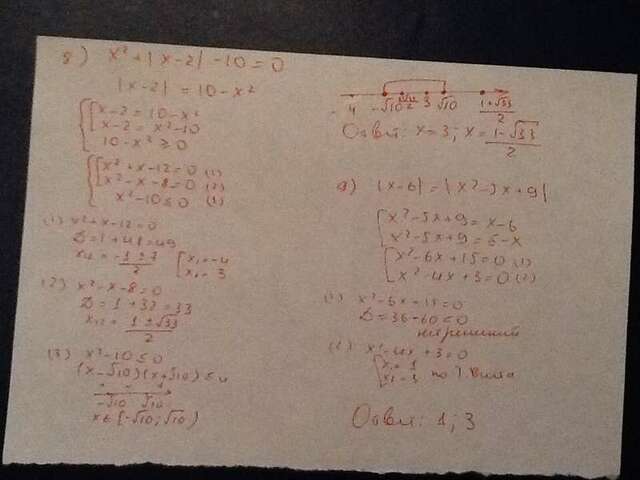 8) x² + |x-2| - 10 = 0
|x-2| = 10 - x²
x-2 = 10-x²
x-2 = x²-10
10-x² ≥ 0
x²+x-12=0 (1)
x²-x-8=0 (2)
x²-10≤0 (3)
(1) x²+x-12=0
D=1+48=49
x₁,₂=-1±7/2 [x₁=-4
x₂=3
(2) x²-x-8=0
D=1+32=33
x₁,₂=1±√33/2
(3) x²-10≤0
(x-√10)(x+√10)≤0
+ - +
-√10 √10
x∈[-√10;√10]
-4 -√10 3 √10 1+√33/2
Ответ: x=3; x=1-√33/2
9) |x-6| = |x²-5x+9|
x²-5x+9=x-6
x²-5x+9=6-x
x²-6x+15=0 (1)
x²-4x+3=0 (2)
(1) x²-6x+15=0
D=36-60≤0
нет решений
(2) x²-4x+3=0
x₁=1
x₂=3 по т. Виета
Ответ: 1; 3